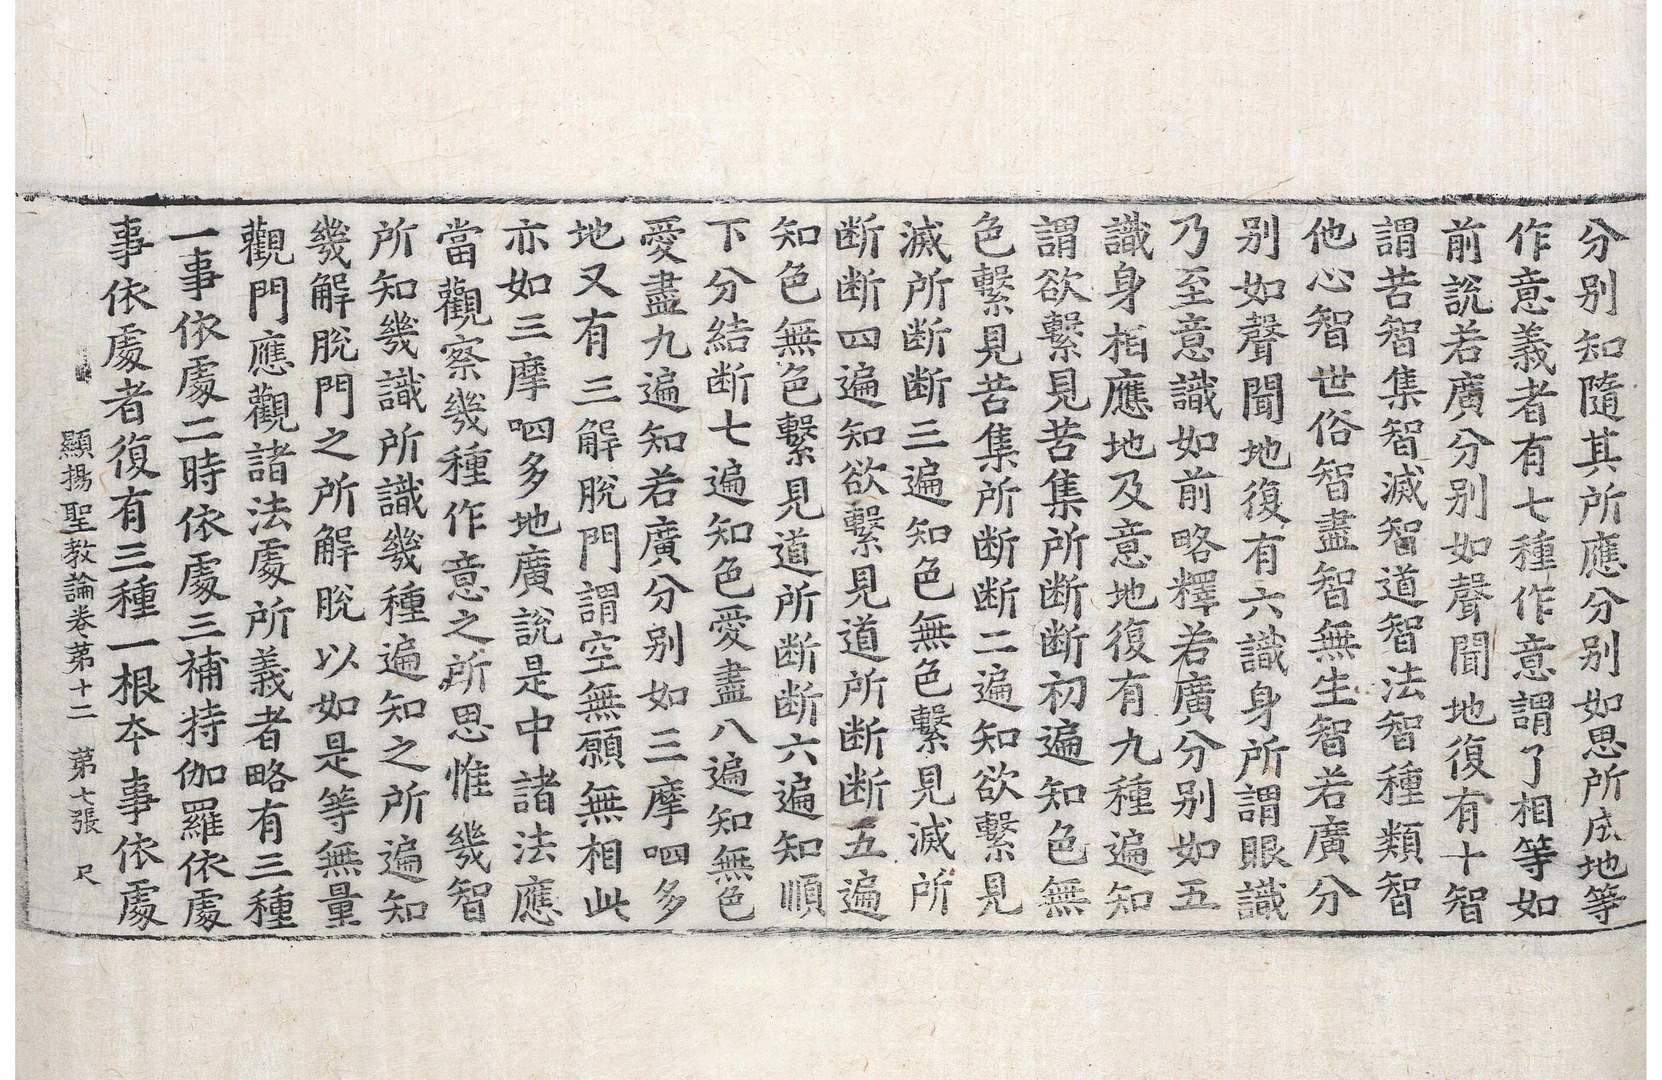 分別知隨其所應分別如思所成地等
作意義者有七種作意謂了相等如
前說若廣分別如聲聞地復有十智
謂苦智集智滅智道智法智種類智
他心智世俗智盡智無生智若廣分
別如聲聞地復有六識身所謂眼識
乃至意識如前略釋若廣分別如五
識身相應地及意地復有九種遍知
謂欲繫見苦集所断断初遍知色無
色繫見苦集所断断二遍知欲繫見
滅所断断三遍知色無色繫見滅所
断断四遍知欲繫見道所断断五遍
知色無色繫見道所断断六遍知順
下分結断七遍知色愛盡八遍知無色
愛盡九遍知若廣分別如三摩呬多
地又有三解脫門謂空無願無相此
亦如三摩呬多地廣說是中諸法應
當觀察幾種作意之所思惟幾智
所知幾識所識幾種遍知之所遍知
幾解脫門之所解脫以如是等無量
觀門應觀諸法處所義者略有三種
一事依處二時依處三補特伽羅依處
事依處者復有三種一根夲事依處
顯揚聖教論卷苐十二　苐七張　尺